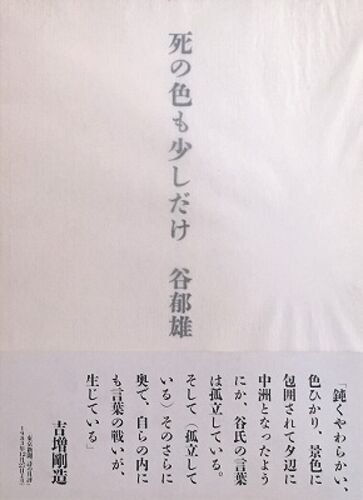 死の色も少しだけ　谷郁雄
「鈍くやわらかい、
色ひかり、景色に
包囲されて夕辺に
中洲となったよう
にか、谷氏の言葉
は孤立している。
そして（孤立して
いる）そのさらに
奥で、自らの内に
も言葉の戦いが、
生じている」
吉増剛造